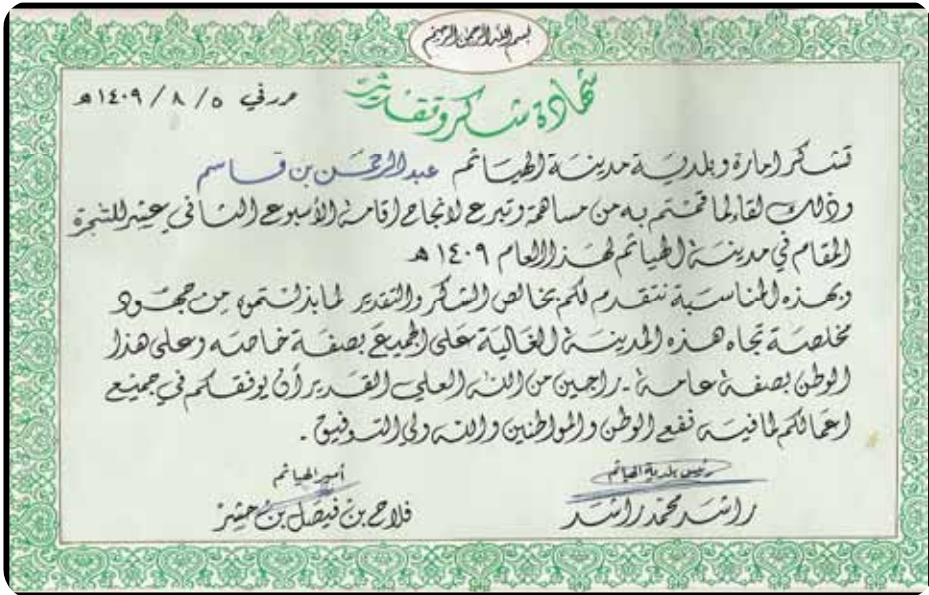 بسم الله الرحمن الرحيم
شهادة شكر وتقدير
حرر في ٥ / ٨ / ١٤٠٩ هـ
تشكر امارة وبلدية مدينة الهياثم عبدالرحمن بن قاسم
وذلك لقاء لما قمتم به من مساهمة وتبرع لانجاح اقامة الأسبوع الثاني عشر للشجرة
المقام في مدينة الهياثم لهذا العام ١٤٠٩ هـ
وبهذه المناسبة نتقدم لكم بخالص الشكر والتقدير لما بذلتموه من جهود
مخلصة تجاه هذه المدينة الغالية على الجميع بصفة خاصه وعلى هذا
الوطن بصفة عامة - راجين من الله العلي القدير أن يوفقكم في جميع
اعمالكم لما فيه نفع الوطن والمواطنين والله ولي التوفيق -
رئيس بلدية الهياثم
راشد محمد راشد
أمير الهياثم
فلاح بن فيصل بن حشر